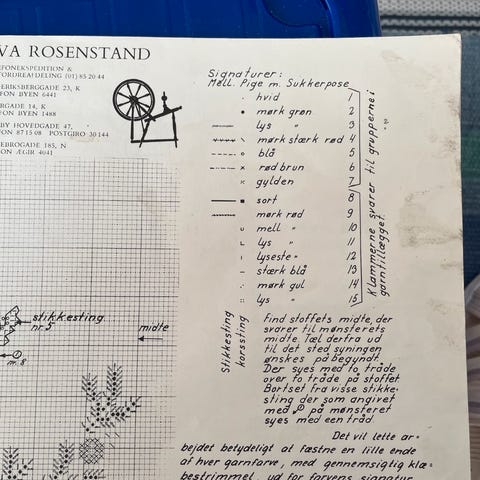 VA ROSENSTAND
EFONEKSPEDITION &
TORDREAFDELING (01) 85 20 44
ERIKSBERGGADE 23, K
FON BYEN 6441
RGADE 14, K
FON BYEN 1488
BY HOVEDGADE 47,
FON 87 15 08 POSTGIRO 30 144
EBROGADE 185, N
ON ÆGIR 4041
Signaturer:
Mell. Pige m. Sukkerpose
hvid 1
mørk grøn 2
lys " 3
mørk stærk rød 4
blå 5
rød brun 6
gylden 7
sort 8
mørk rød 9
mell " 10
lys " 11
lyseste " 12
stærk blå 13
mørk gul 14
lys " 15
Klammerne svarer til grupperne i
garntillægget.
stikkesting
nr 5
midte
nr. 8
Stikkesting
korssting
Find stoffets midte, der
svarer til mønsterets
midte Tæl derfra ud
til det sted syningen
ønskes påbegyndt.
Der syes med to tråde
over to tråde på stoffet
Bortset fra visse stikke-
sting der som angivet
med på mønsteret
syes med een tråd.
Det vil lette ar-
bejdet betydeligt at fæstne en lille ende
af hver garnfarve, med gennemsigtig klæ-
bestrimmel ud for farvens signatur